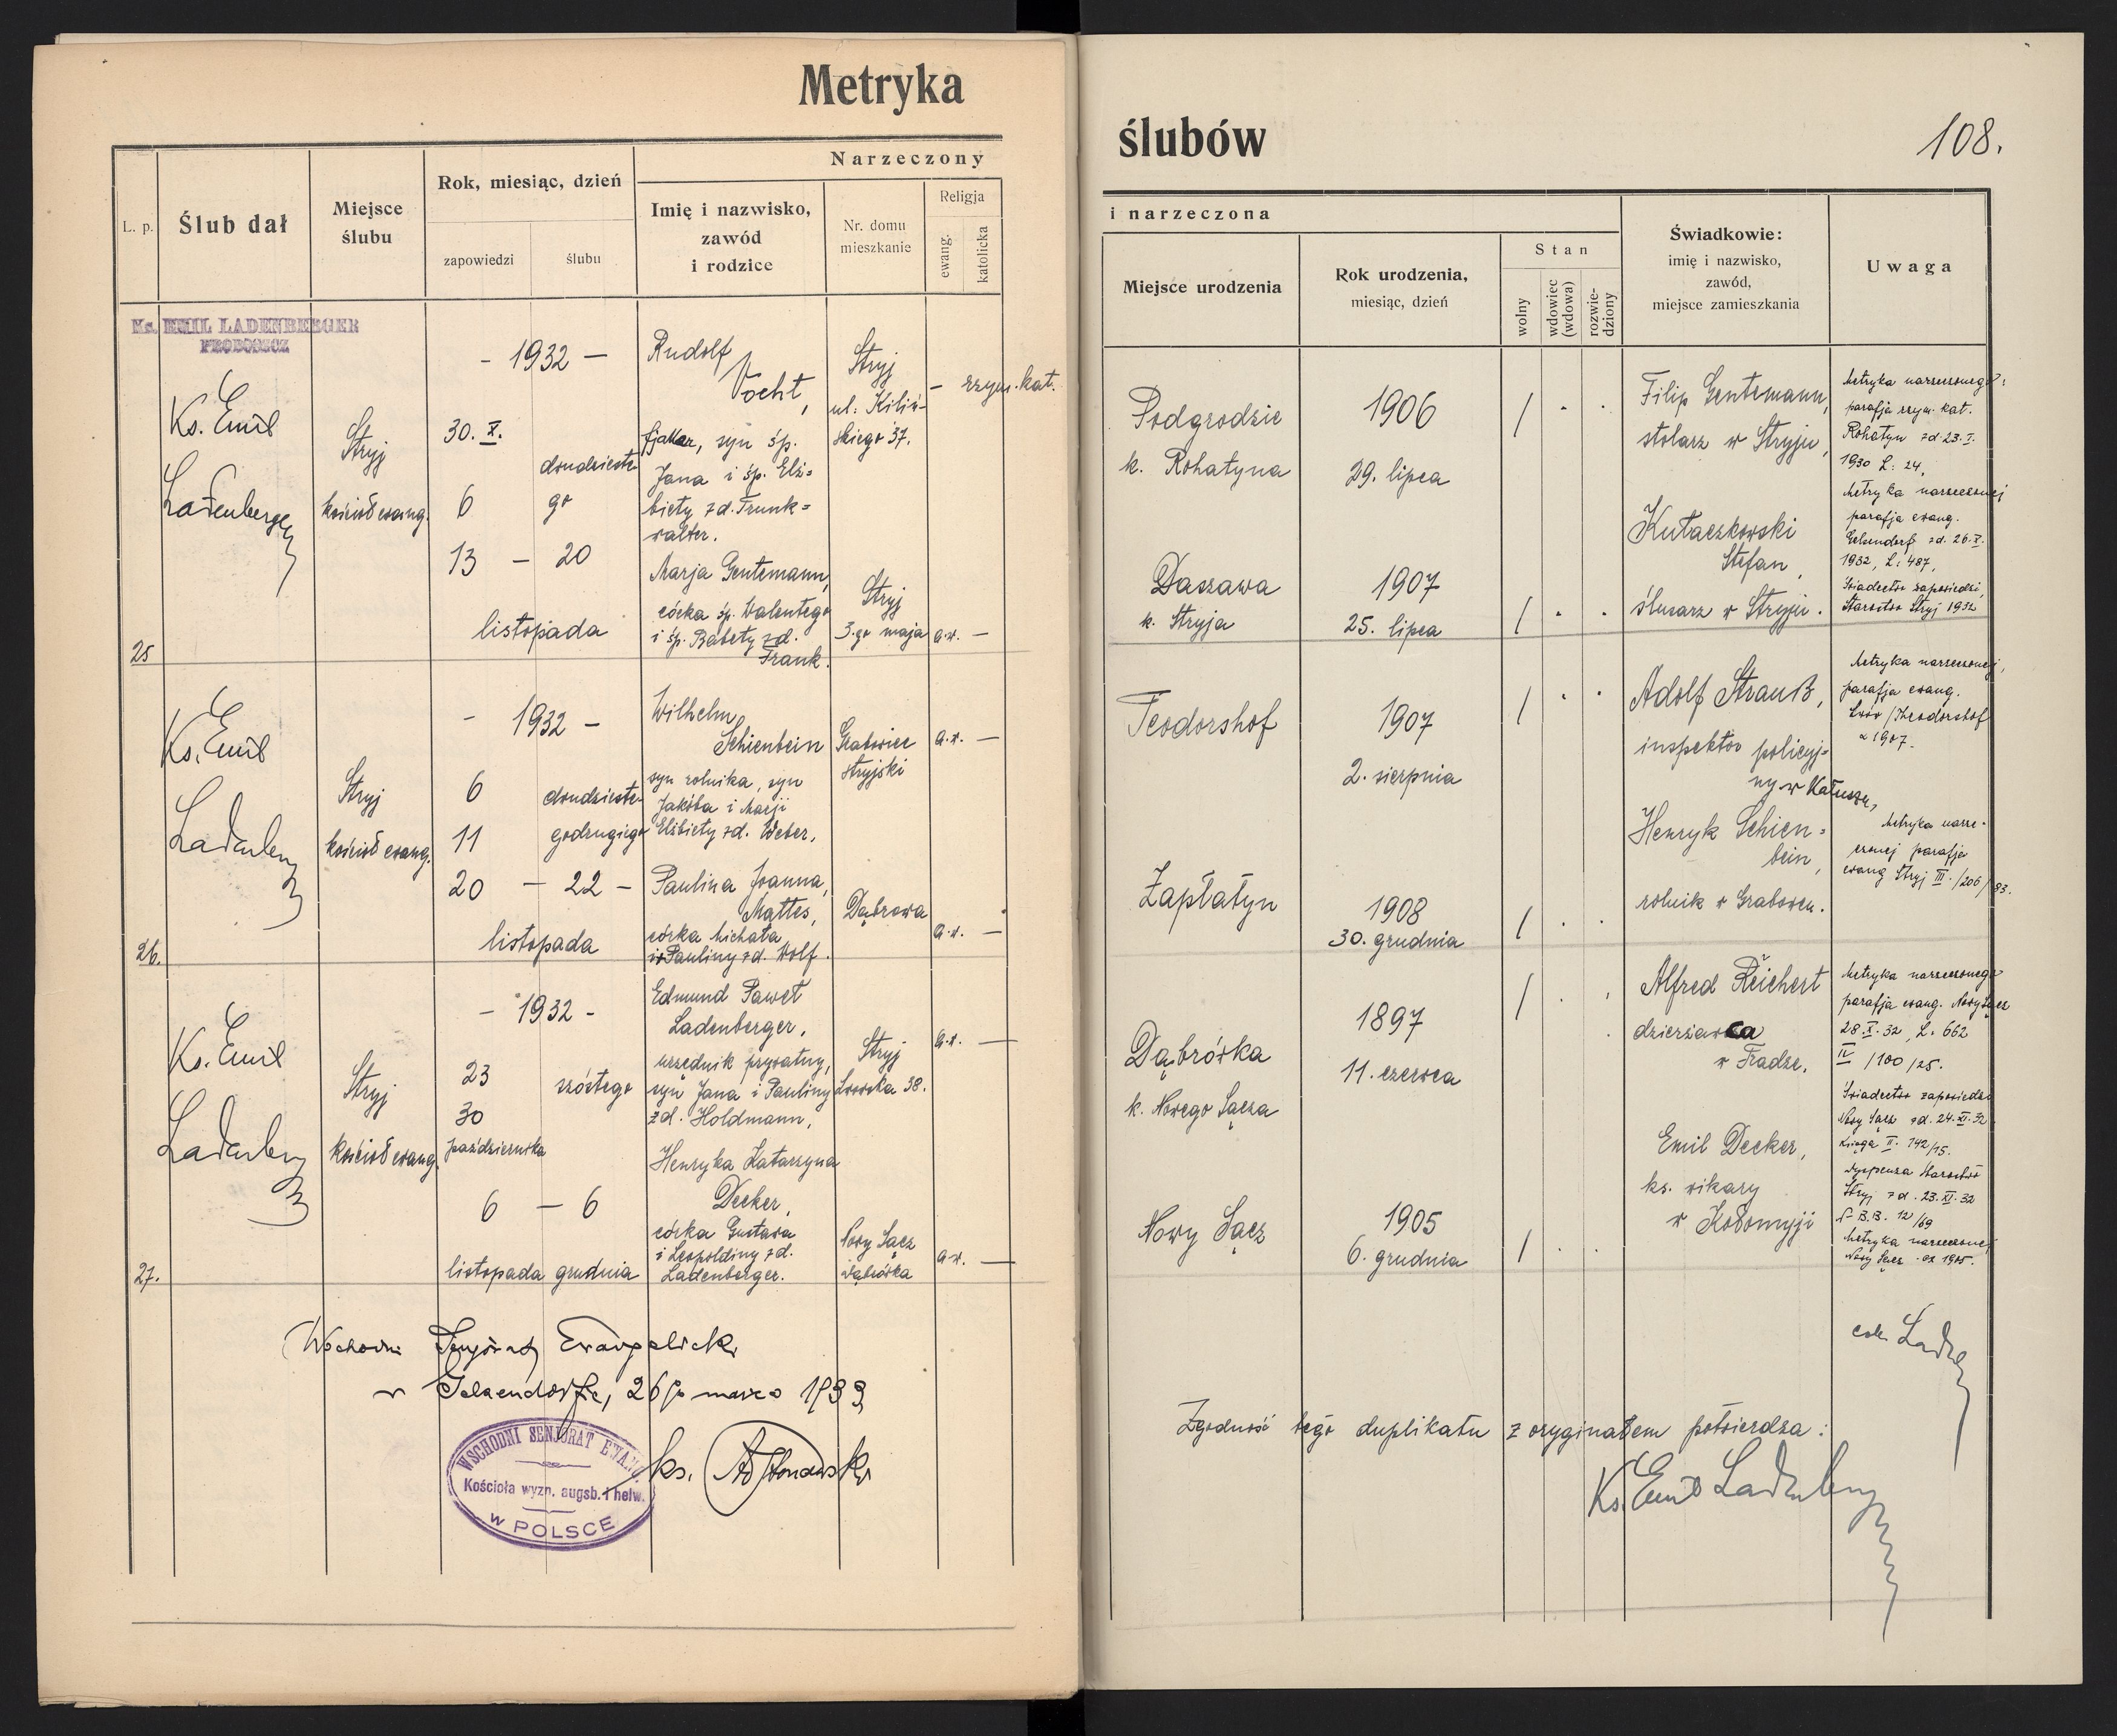 Metryka
Narzeczony
L. p.
Ślub dał
Miejsce
ślubu
Rok, miesiąc, dzień
zapowiedzi
ślubu
Imię i nazwisko,
zawód
i rodzice
Nr. domu
mieszkanie
Religja
ewang.
katolicka
Ks. EMIL LADENBERGER
PROBOSZCZ
Ks. Emil
Ladenberger
Stryj
kościół ewang.
- 1932 -
30. X.
6
13 - 20
dwudzieste-
go
listopada
Rudolf
Vocht,
fjakier, syn śp.
Jana i śp. Elż=
biety zd. Trunk=
walter.
Stryj
ul. Kiliń-
skiego 37.
- rzym. kat.
Marja Gentzmann,
córka śp. Walentego
i śp. Babety zd.
Frank.
Stryj
3-go maja
a.w. -
25
Ks. Emil
Ladenberger
Stryj
kościół ewang.
- 1932 -
6
11
20 - 22 -
dwudzieste-
godrugiego
listopada
Wilhelm
Schienbein
syn rolnika, syn
Jakóba i Marji
Elżbiety zd. Weber,
Grabowiec
stryjski
a.w. -
Paulina Joanna,
Mattes,
córka Michała
i Pauliny zd. Wolf.
Dąbrowa
a.w. -
26.
Ks. Emil
Ladenberger
Stryj
kościół ewang.
- 1932 -
23
30
października
6 - 6
szóstego
listopada grudnia
Edmund Paweł
Ladenberger,
urzędnik prywatny,
syn Jana i Pauliny
zd. Holdmann,
Stryj
Lwowska 38.
a.w. -
Henryka Katarzyna
Decker,
córka Gustawa
i Leopoldiny zd.
Ladenberger.
Nowy Sącz
Dąbrówka
a.w. -
27.
Wschodni Senjorat Ewangelicki
w Gelsendorfie, 26go marca 1933
WSCHODNI SENJORAT EWANG.
Kościoła wyzn. augsb. i helw.
w POLSCE
ks.
ślubów
108.
i narzeczona
Miejsce urodzenia
Rok urodzenia,
miesiąc, dzień
Stan
wolny
wdowiec
(wdowa)
rozwie-
dziony
Świadkowie:
imię i nazwisko,
zawód,
miejsce zamieszkania
Uwaga
Podgrodzie
k. Rohatyna
1906
29. lipca
/ . .
Filip Gentzmann,
stolarz w Stryju,
Metryka narzeczonego:
parafja rzym. kat.
Rohatyn zd. 23. I.
1930 L: 24,
Daszawa
k. Stryja
1907
25. lipca
/ . .
Kułaczkowski
Stefan,
ślusarz w Stryju.
Metryka narzeczonej
parafja ewang.
Gelsendorf zd. 26. X.
1932, L: 487,
Świadectwo zapowiedzi,
Starostwo Stryj 1932
Teodorshof
1907
2. sierpnia
/ . .
Adolf Strauß,
inspektor policyj=
ny w Kałuszu,
Metryka narzeczonej,
parafja ewang.
Lwów /Theodorshof
1907.
Zapłatyn
1908
30. grudnia
/ . .
Henryk Schien=
bein,
rolnik w Grabowcu.
Metryka narze-
czonej parafja
ewang Stryj III. /206/83.
Dąbrówka
k. Nowego Sącza
1897
11. czerwca
/ . .
Alfred Reichert
dzierżawca
w Fradze,
Metryka narzeczonego
parafja ewang. Nowy Sącz
28. X. 32, L. 662
IV /100/25.
Świadectwo zapowiedzi
Nowy Sącz zd. 24. XI. 32
Księga II. 142/15.
Nowy Sącz
1905
6. grudnia
/ . .
Emil Decker,
ks. wikary
w Kołomyji
Dyspenza Starostwo
Stryj zd. 23. XI. 32
B.B. 12/69
Metryka narzeczonej
Nowy Sącz 1905.
Zgodność tego duplikatu z oryginałem potwierdza:
Ks. Emil Ladenberger